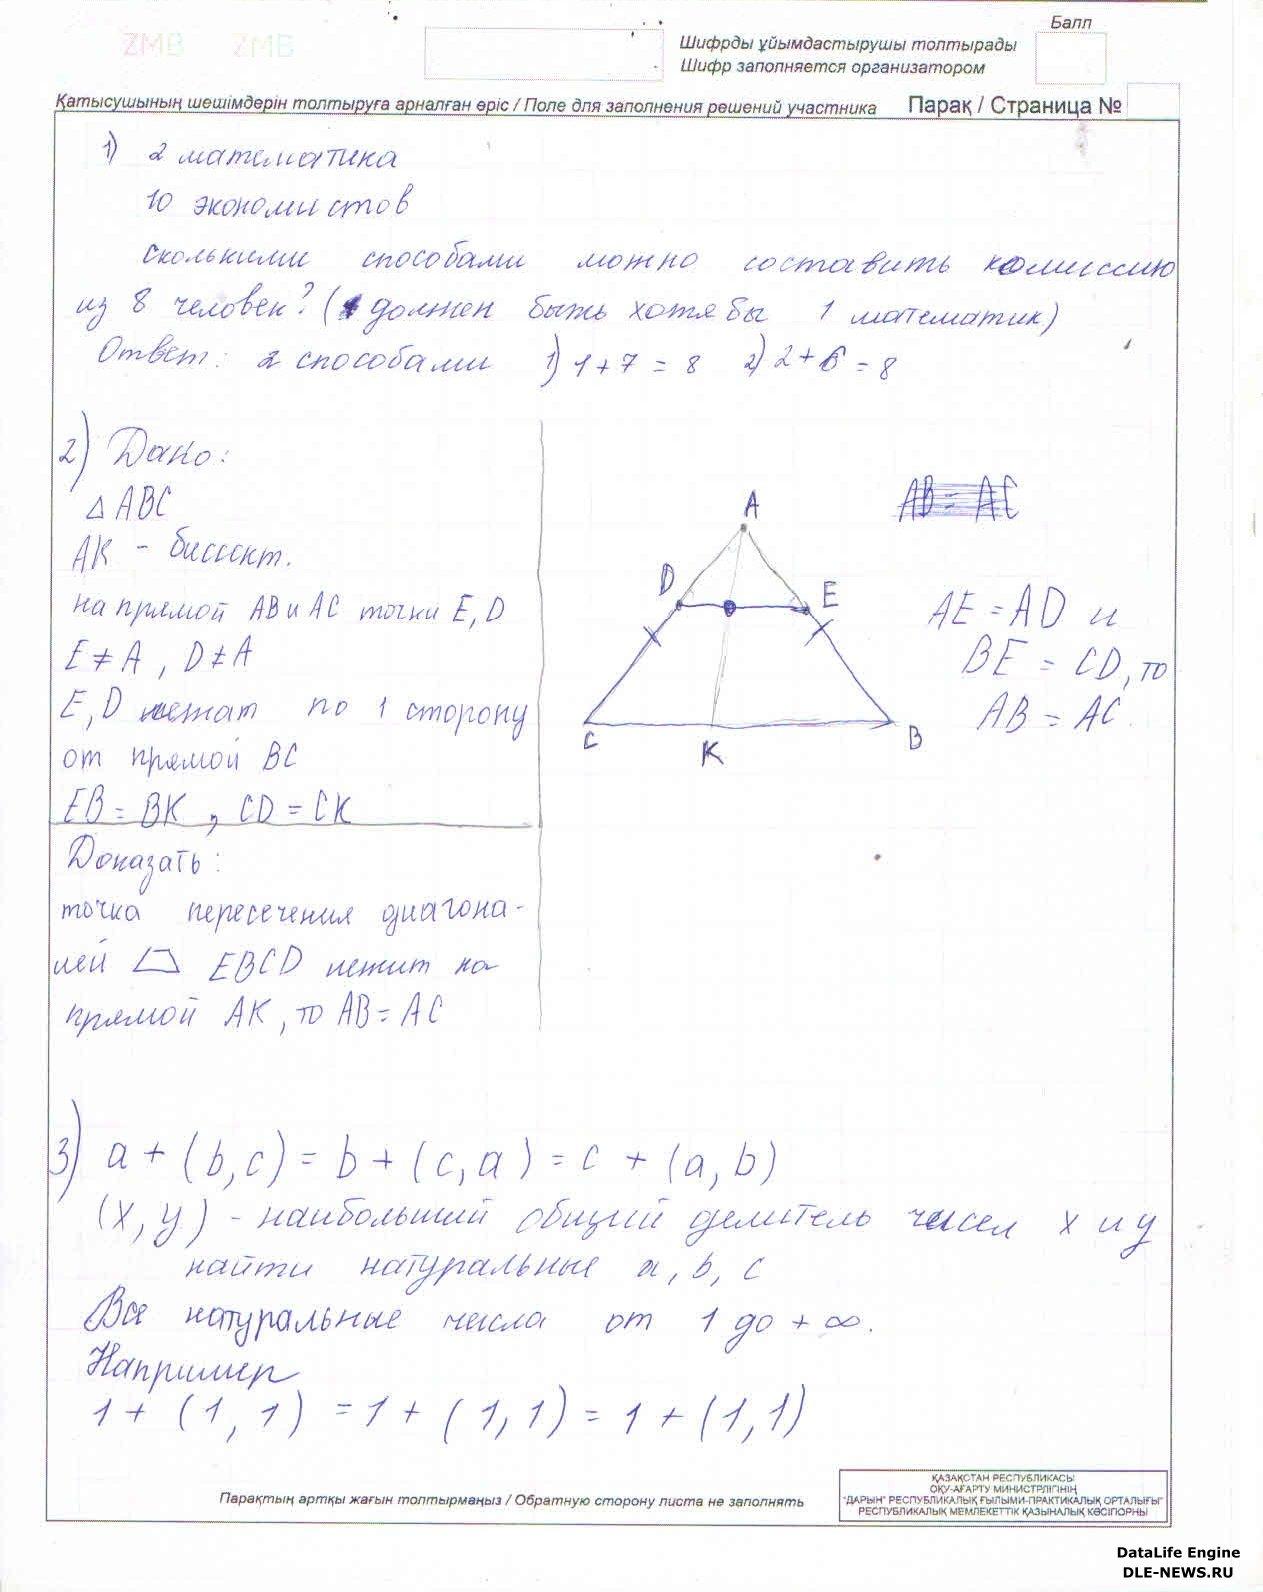 ZMB ZMB
Балл
Шифрды ұйымдастырушы толтырады
Шифр заполняется организатором
Қатысушының шешімдерін толтыруға арналған өріс / Поле для заполнения решений участника Парақ / Страница №
1) 2 математика
10 экономистов
сколькими способами можно составить комиссию
из 8 человек? ( должен быть хотя бы 1 математик)
Ответ: 2 способами 1) 1 + 7 = 8 2) 2 + 6 = 8
2) Дано:
△ ABC
AK - биссект.
на прямой AB и AC точки E, D
E ≠ A , D ≠ A
E, D лежат по 1 сторону
от прямой BC
EB = BK , CD = CK
Доказать:
точка пересечения диагона-
лей ⏢ EBCD лежит на
прямой AK, то AB = AC
A
D
E
C
K
B
AB = AC
AE = AD и
BE = CD, то
AB = AC.
3) a + (b, c) = b + (c, a) = c + (a, b)
(x, y) - наибольший общий делитель чисел x и y
найти натуральные a, b, c
Все натуральные числа от 1 до + ∞.
Например
1 + (1, 1) = 1 + (1, 1) = 1 + (1, 1)
Парақтың артқы жағын толтырмаңыз / Обратную сторону листа не заполнять
ҚАЗАҚСТАН РЕСПУБЛИКАСЫ
ОҚУ-АҒАРТУ МИНИСТРЛІГІНІҢ
"ДАРЫН" РЕСПУБЛИКАЛЫҚ ҒЫЛЫМИ-ПРАКТИКАЛЫҚ ОРТАЛЫҒЫ"
РЕСПУБЛИКАЛЫҚ МЕМЛЕКЕТТІК ҚАЗЫНАЛЫҚ КӘСІПОРНЫ
DataLife Engine
DLE-NEWS.RU